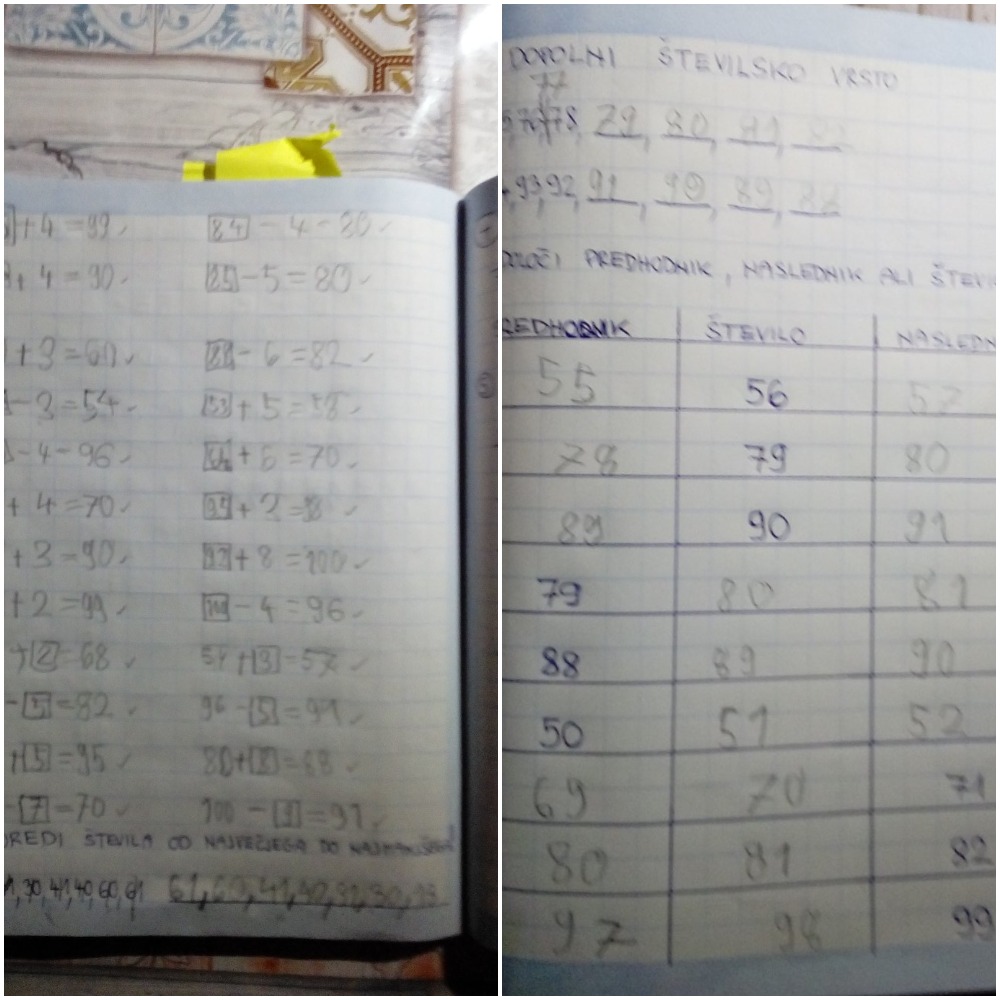 +4=99 84 - 4 - 80
+ 4 = 90 85 - 5 = 80
+ 3 = 60 88 - 6 = 82
- 3 = 54 53 + 5 = 58
- 4 - 96 + 6 = 70
+ 4 = 70 + 3 =
+ 3 = 90 92 + 8 = 100
+ 2 = 99 100 - 4 = 96
+ 2 = 68 54 + 3 = 57
- 5 = 82 96 - 5 = 91
+ 5 = 95 80 + 8 = 68
- 7 = 70 100 - 9 = 91
REDI ŠTEVILA OD NAJVEČJEGA DO NAJMANJŠEGA
1, 30, 41, 40, 60, 61 61, 60, 41, 40, 31, 30,
DOPOLNI ŠTEVILSKO VRSTO
77
78, 79, 80, 81,
93, 92, 91, 90, 89, 88
DOLOČI PREDHODNIK, NASLEDNIK ALI ŠTEVI
REDHODNIK ŠTEVILO NASLEDN
55 56 57
78 79 80
89 90 91
79 80 81
88 89 90
50 51 52
69 70 71
80 81 82
97 98 99